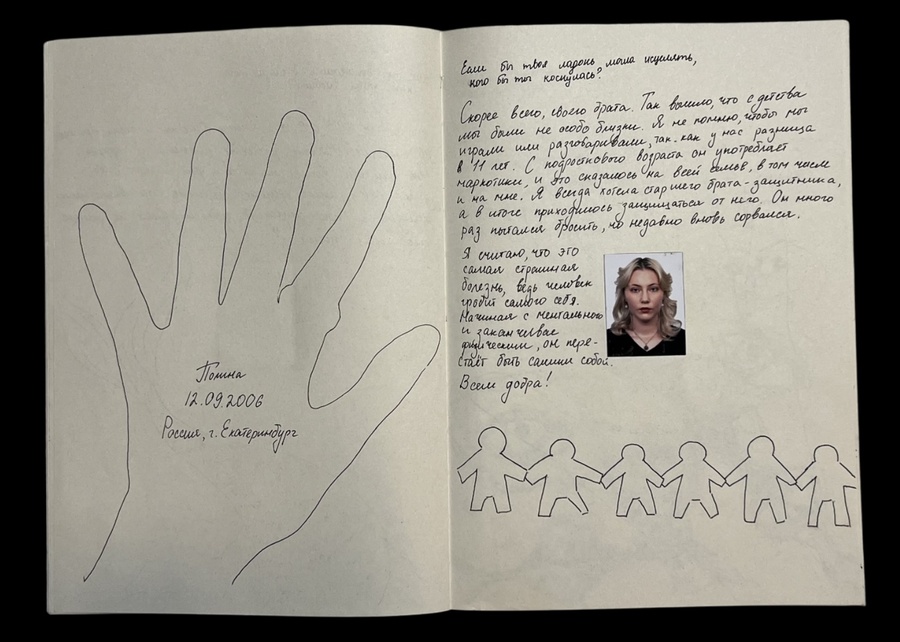 Полина
12.09.2006
Россия, г. Екатеринбург
Если бы твоя ладонь могла исцелять,
кого бы ты коснулась?
Скорее всего, своего брата. Так вышло, что с детства
мы были не особо близки. Я не помню, чтобы мы
играли или разговаривали, так как у нас разница
в 11 лет. С подросткового возраста он употребляет
наркотики, и это сказалось на всей семье, в том числе
и на мне. Я всегда хотела старшего брата-защитника,
а в итоге приходилось защищаться от него. Он много
раз пытался бросить, но недавно вновь сорвался.
Я считаю, что это
самая страшная
болезнь, ведь человек
гробит самого себя.
Начиная с ментального
и заканчивая
физическим, он пере-
стаёт быть самим собой.
Всем добра!